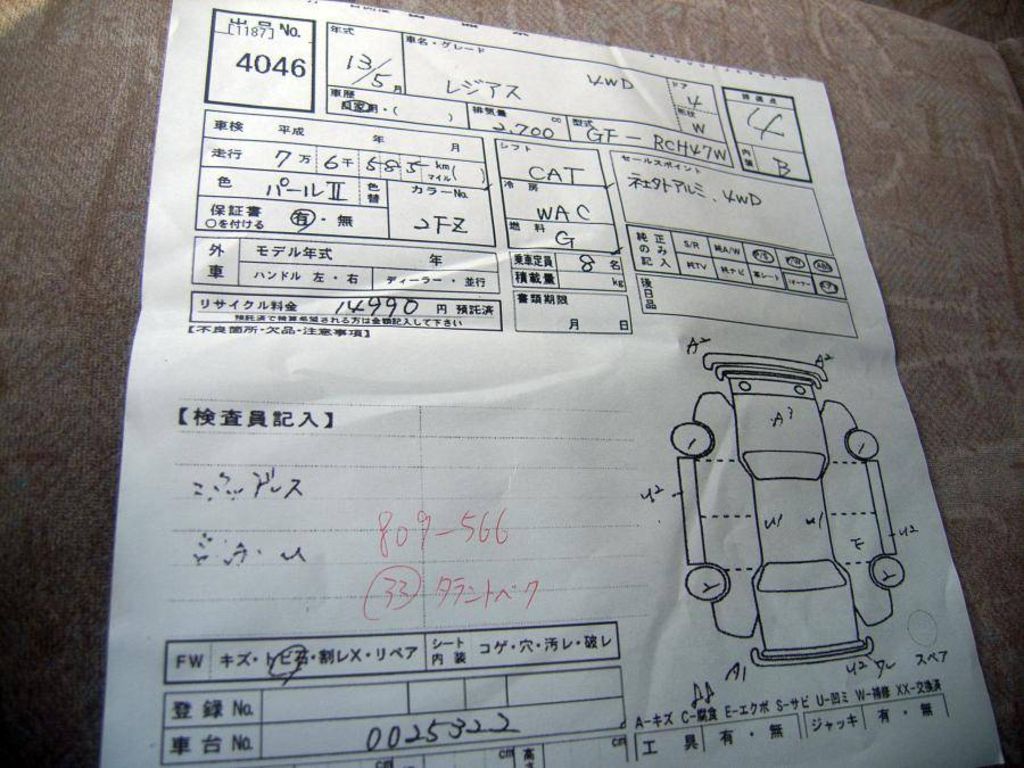 出品 No.
[1187]
4046
年式
13/5 月
車名・グレード
レジアス 4WD
ドア
4
形状
W
評価点
4
内装 B
車歴
自家用・( )
排気量 cc
2,700
型式
GF-RCH47W
車検 平成 年 月
走行 7万6千585 km マイル( )
色 パールII 色替 カラーNo. 2FZ
保証書 ○を付ける 有・無
シフト
CAT
冷房
WAC
燃料
G
乗車定員 8 名
積載量 kg
書類期限
月 日
セールスポイント
アルミ、4WD
純正のみ記入
S/R 純A/W P/S P/W ABS
純TV 純ナビ 革シート
後日品
外車
モデル年式 年
ハンドル 左・右 ディーラー・並行
リサイクル料金 14990 円 預託済
預託済で精算希望される方は金額記入して下さい
【不良箇所・欠品・注意事項】
【検査員記入】
809-566
33 タラントベク
A2 A2
A3
U2
U1 U1
E
U2
A1
U2 ワレ スペア
FW キズ・トビ石・割レX・リペア シート内装 コゲ・穴・汚レ・破レ
登録 No.
車台 No. 0025322
A-キズ C-腐食 E-エクボ S-サビ U-凹ミ W-補修 XX-交換済
工具 有・無 ジャッキ 有・無
cm cm 高さ cm